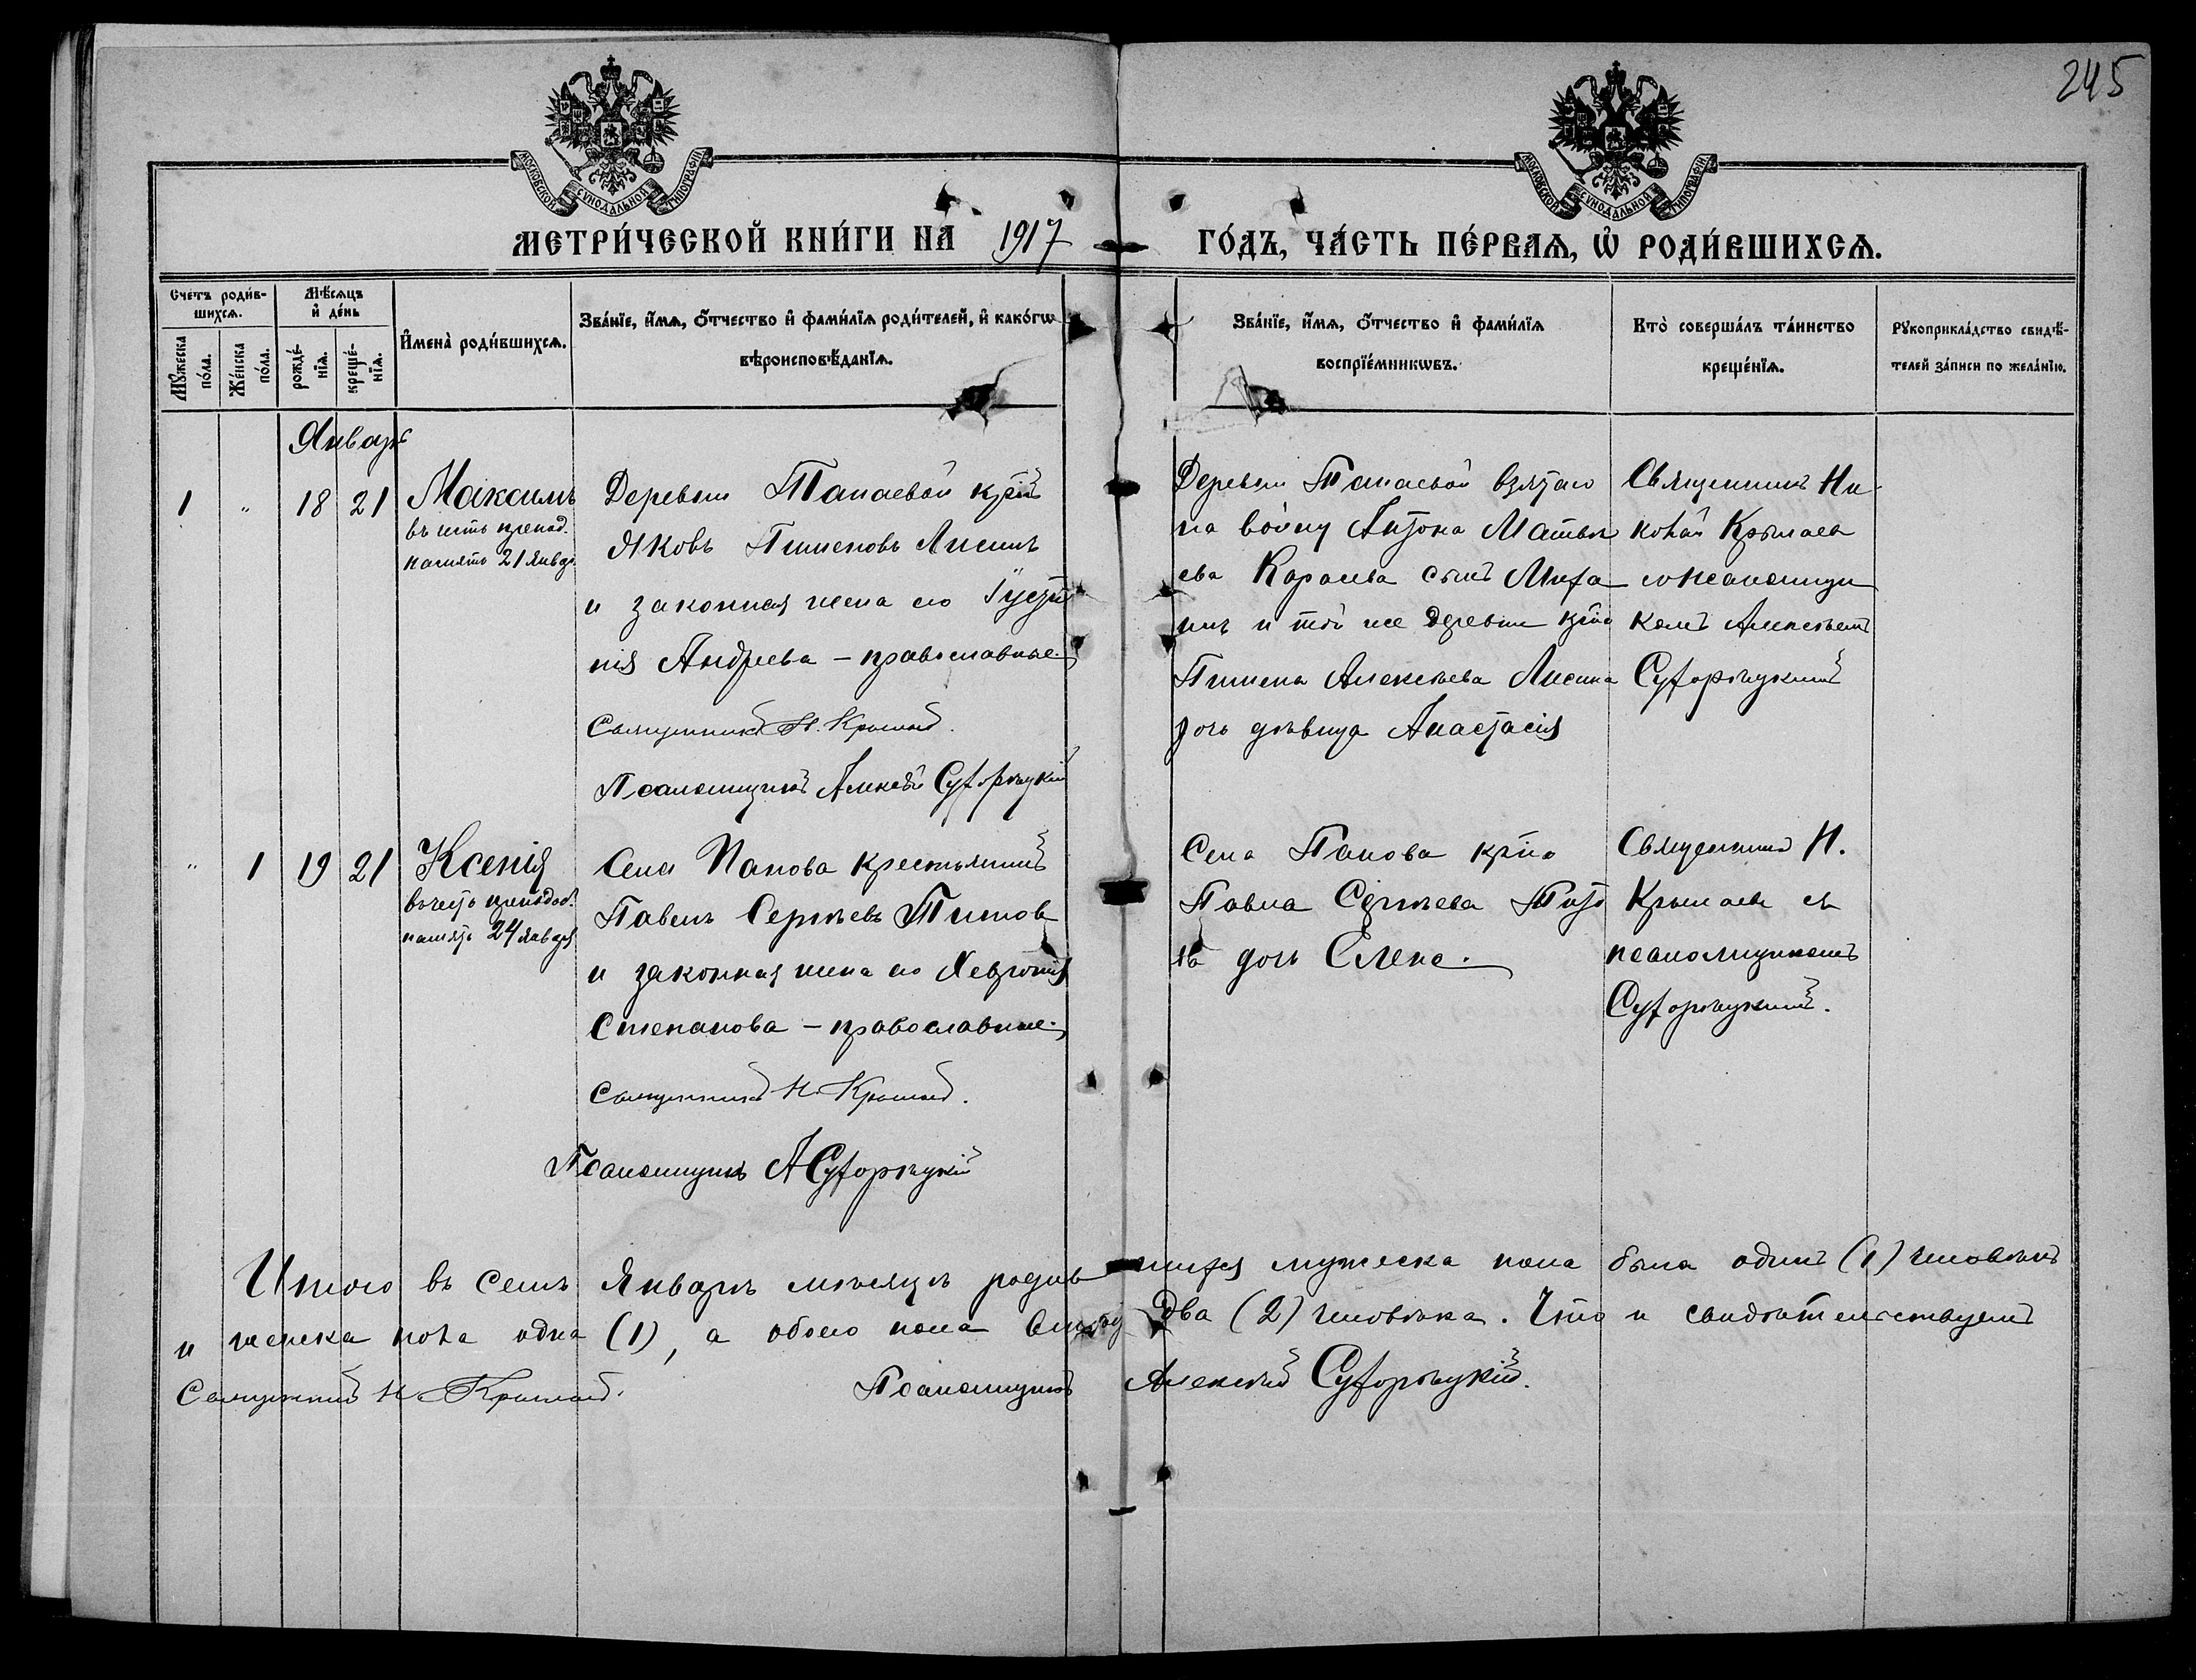 245
МОСКОВСКОЙ СУНОДАЛЬНОЙ ТИПОГРАФІИ
МОСКОВСКОЙ СУНОДАЛЬНОЙ ТИПОГРАФІИ
МЕТРИ́ЧЕСКОЙ КНИ́ГИ НА 1917 ГО́ДЪ, ЧА́СТЬ ПЕ́РВАѦ, Ѡ РОДИ́ВШИХСѦ.
Счетъ роди́в-
шихсѧ.
Мꙋ́жеска
по́ла.
Же́нска
по́ла.
Мѣ́сѧцъ
и҆ де́нь
рожде́-
нїѧ.
креще́-
нїѧ.
И҆мена̀ роди́вшихсѧ.
Зва́нїе, и҆́мѧ, ѻ҆́тчество и҆ фами́лїѧ роди́телей, и҆ како́гѡ
вѣроисповѣ́данїѧ.
Зва́нїе, и҆́мѧ, ѻ҆́тчество и҆ фами́лїѧ
воспрїе́мникѡвъ.
Кто̀ соверша́лъ та́инство
креще́нїѧ.
Рꙋкоприкла́дство свидѣ́-
телей за́писи по жела́нїю.
Январь
1 " 18 21
Максимъ
въ честь препод.
память 21 Январ.
Деревни Танаевой кр-нъ
Яковъ Пименовъ Лисинъ
и законная жена его
нія Андреева – православные.
Священникъ Н. Крылов
Псаломщикъ Алексѣй
Деревни Танаевой взятаго
на войну Антона Матвѣ
ева сынъ Миха
илъ и той же деревни кр-на
Пимена Алексѣева Лисина
дочь дѣвица Анастасія
Священникъ Ни-
колай Крылов
съ псаломщи
комъ Алексѣемъ
" 1 19 21
Ксенія
въ честь преподоб.
память 24 января
Села Панова крестьянинъ
Павелъ Сергѣевъ Титовъ
и законная жена его Хеврошия
Степанова – православные.
Священникъ Н. Крылов
Псаломщикъ А
Села Панова кр-на
Павла Сергѣева Тито
ва дочь Елена.
Священникъ Н.
Крылов съ
псаломщикомъ
Итого въ семъ Январѣ мѣсяцѣ родив шихся мужеска пола было одинъ (1) человѣкъ
и женска пола одна (1), а обоего пола два (2) человѣка. Что и свидѣтельствуемъ
Священникъ Н. Крылов. Псаломщикъ Алексѣй